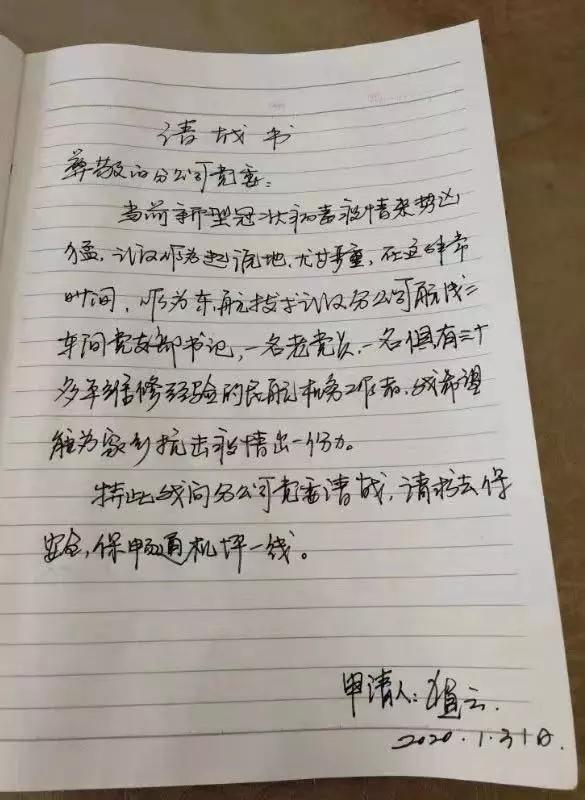 请战书
尊敬的分公司党委:
当前新型冠状病毒疫情来势凶
猛,武汉作为起源地,尤其严重,在这非常
时间,作为东航技术武汉分公司航线二
车间党支部书记,一名老党员,一名俱有三十
多年维修经验的民航机务工作者,我希望
能为家乡抗击疫情出一份力。
特此我向分公司党委请战,请求去保
安全,保畅通机坪一线。
申请人:云.
2020.1.31日